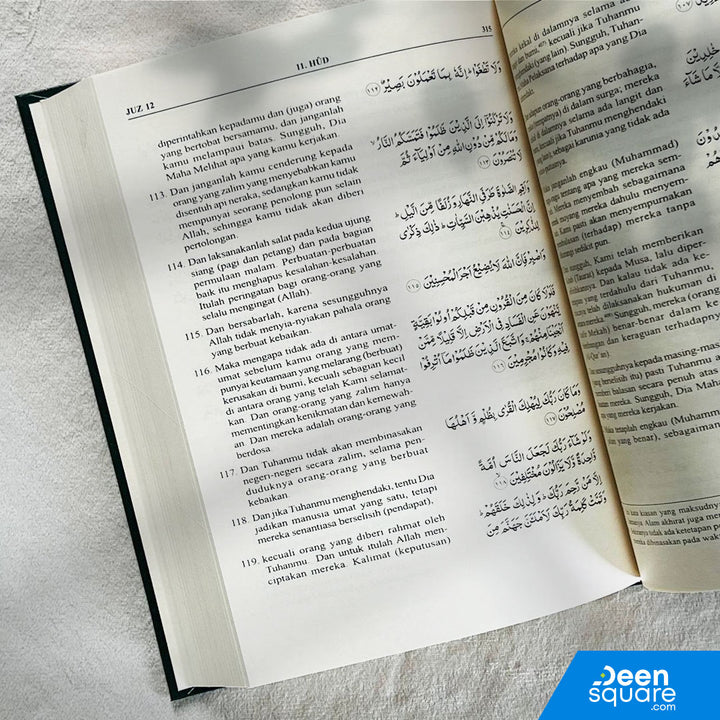 JUZ 12
11. HŪD
315
diperintahkan kepadamu dan (juga) orang
yang bertobat bersamamu, dan janganlah
kamu melampaui batas. Sungguh, Dia
Maha Melihat apa yang kamu kerjakan.
113. Dan janganlah kamu cenderung kepada
orang yang zalim yang menyebabkan kamu
disentuh api neraka, sedangkan kamu tidak
mempunyai seorang penolong pun selain
Allah, sehingga kamu tidak akan diberi
pertolongan.
114. Dan laksanakanlah salat pada kedua ujung
siang (pagi dan petang) dan pada bagian
permulaan malam. Perbuatan-perbuatan
baik itu menghapus kesalahan-kesalahan
Itulah peringatan bagi orang-orang yang
selalu mengingat (Allah)
115. Dan bersabarlah, karena sesungguhnya
Allah tidak menyia-nyiakan pahala orang
yang berbuat kebaikan.
116. Maka mengapa tidak ada di antara umat-
umat sebelum kamu orang yang mem-
punyai keutamaan yang melarang (berbuat)
kerusakan di bumi, kecuali sebagian kecil
di antara orang yang telah Kami selamat-
kan. Dan orang-orang yang zalim hanya
mementingkan kenikmatan dan kemewah-
an. Dan mereka adalah orang-orang yang
berdosa.
117. Dan Tuhanmu tidak akan membinasakan
negeri-negeri secara zalim, selama pen-
duduknya orang-orang yang berbuat
kebaikan.
118. Dan jika Tuhanmu menghendaki, tentu Dia
jadikan manusia umat yang satu, tetapi
mereka senantiasa berselisih (pendapat),
119. kecuali orang yang diberi rahmat oleh
Tuhanmu. Dan untuk itulah Allah men-
ciptakan mereka. Kalimat (keputusan)
وَلَا تَطْغَوْا ۗ اِنَّهٗ بِمَا تَعْمَلُوْنَ بَصِيْرٌ ١١٢
وَلَا تَرْكَنُوْٓا اِلَى الَّذِيْنَ ظَلَمُوْا فَتَمَسَّكُمُ النَّارُ
وَمَا لَكُمْ مِّنْ دُوْنِ اللّٰهِ مِنْ اَوْلِيَاۤءَ ثُمَّ
لَا تُنْصَرُوْنَ ١١٣
وَاَقِمِ الصَّلٰوةَ طَرَفَيِ النَّهَارِ وَزُلَفًا مِّنَ الَّيْلِ ۗ
اِنَّ الْحَسَنٰتِ يُذْهِبْنَ السَّيِّاٰتِ ۗ ذٰلِكَ ذِكْرٰى
لِلذّٰكِرِيْنَ ١١٤
وَاصْبِرْ فَاِنَّ اللّٰهَ لَا يُضِيْعُ اَجْرَ الْمُحْسِنِيْنَ ١١٥
فَلَوْلَا كَانَ مِنَ الْقُرُوْنِ مِنْ قَبْلِكُمْ اُولُوْا بَقِيَّةٍ
يَّنْهَوْنَ عَنِ الْفَسَادِ فِى الْاَرْضِ اِلَّا قَلِيْلًا مِّمَّنْ
اَنْجَيْنَا مِنْهُمْ ۚ وَاتَّبَعَ الَّذِيْنَ ظَلَمُوْا مَآ اُتْرِفُوْا
فِيْهِ وَكَانُوْا مُجْرِمِيْنَ ١١٦
وَمَا كَانَ رَبُّكَ لِيُهْلِكَ الْقُرٰى بِظُلْمٍ وَّاَهْلُهَا
مُصْلِحُوْنَ ١١٧
وَلَوْ شَاۤءَ رَبُّكَ لَجَعَلَ النَّاسَ اُمَّةً
وَّاحِدَةً وَّلَا يَزَالُوْنَ مُخْتَلِفِيْنَ ۙ ١١٨
اِلَّا مَنْ رَّحِمَ رَبُّكَ ۗ وَلِذٰلِكَ خَلَقَهُمْ ۗ
وَتَمَّتْ كَلِمَةُ رَبِّكَ لَاَمْلَـَٔنَّ جَهَنَّمَ مِنَ
kekal di dalamnya selama
kecuali jika Tuhanmu
(yang lain) Sungguh, Tuhan-
terhadap apa yang Dia
orang-orang yang berbahagia,
di dalam surga, mereka
di dalamnya selama ada langit dan
jika Tuhanmu menghendaki
sebagai karunia yang tidak ada
janganlah engkau (Muhammad)
tentang apa yang mereka sem-
Mereka menyembah sebagaimana
nenek moyang mereka dahulu menyem-
Kami pasti akan menyempurnakan
(terhadap) mereka tanpa
sedikit pun.
Kami telah memberikan
kepada Musa, lalu diper-
Dan kalau tidak ada ke-
yang terdahulu dari Tuhanmu,
telah dilaksanakan hukuman di
Sungguh, mereka (orang
Mekah) benar-benar dalam
dan keraguan terhadapnya
Qur'an).
sesungguhnya kepada masing-mas
yang berselisih itu) pasti Tuhanmu a
balasan secara penuh atas
mereka. Sungguh, Dia Mah
yang mereka kerjakan.
tetaplah engkau (Muhamma
yang benar), sebagaimana
kiasan yang maksudnya
Alam akhirat juga me
tidak ada ketetapan
mereka dibinasakan pada wak
Deen
square
.com